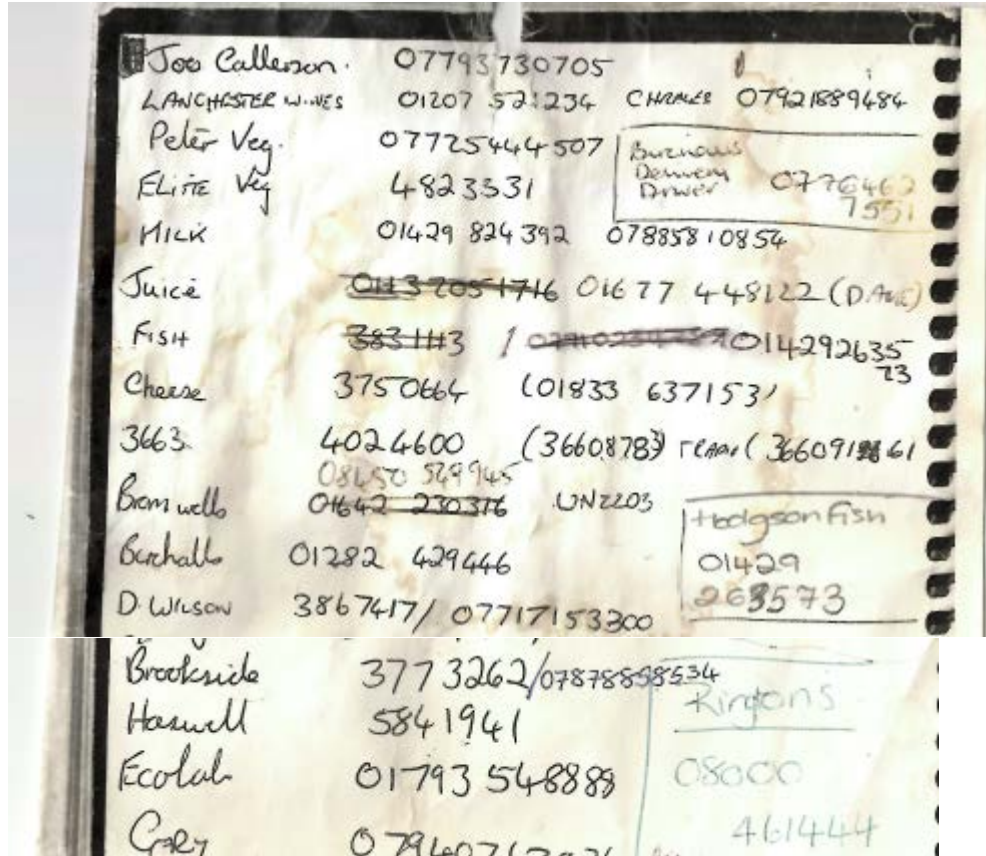 Joe Callerson. 07793730705
LANCHESTER WINES 01207 521234 CHARLES 07921889484
Peter Veg. 07725444507
Elite Veg 4823331
Delivery
Driver 0776462
7551
MILK 01429 824392 07885810854
Juice 01137051716 01677 448122 (DAVE)
FISH 3831113 / 014292635
73
Cheese 3750664 (01833 637153)
3663. 4024600 (3660878) (36609161
08450 549945
Bromwells 01642 230316 UNZZ03
Hodgson Fish
01429
263573
Burchalls 01282 429446
D. WILSON 3867417/ 07717153300
Brookside 3773262/07878858534
Haswell 5841941
Ringtons
08000
461444
Ecolab 01793 548888
Gary